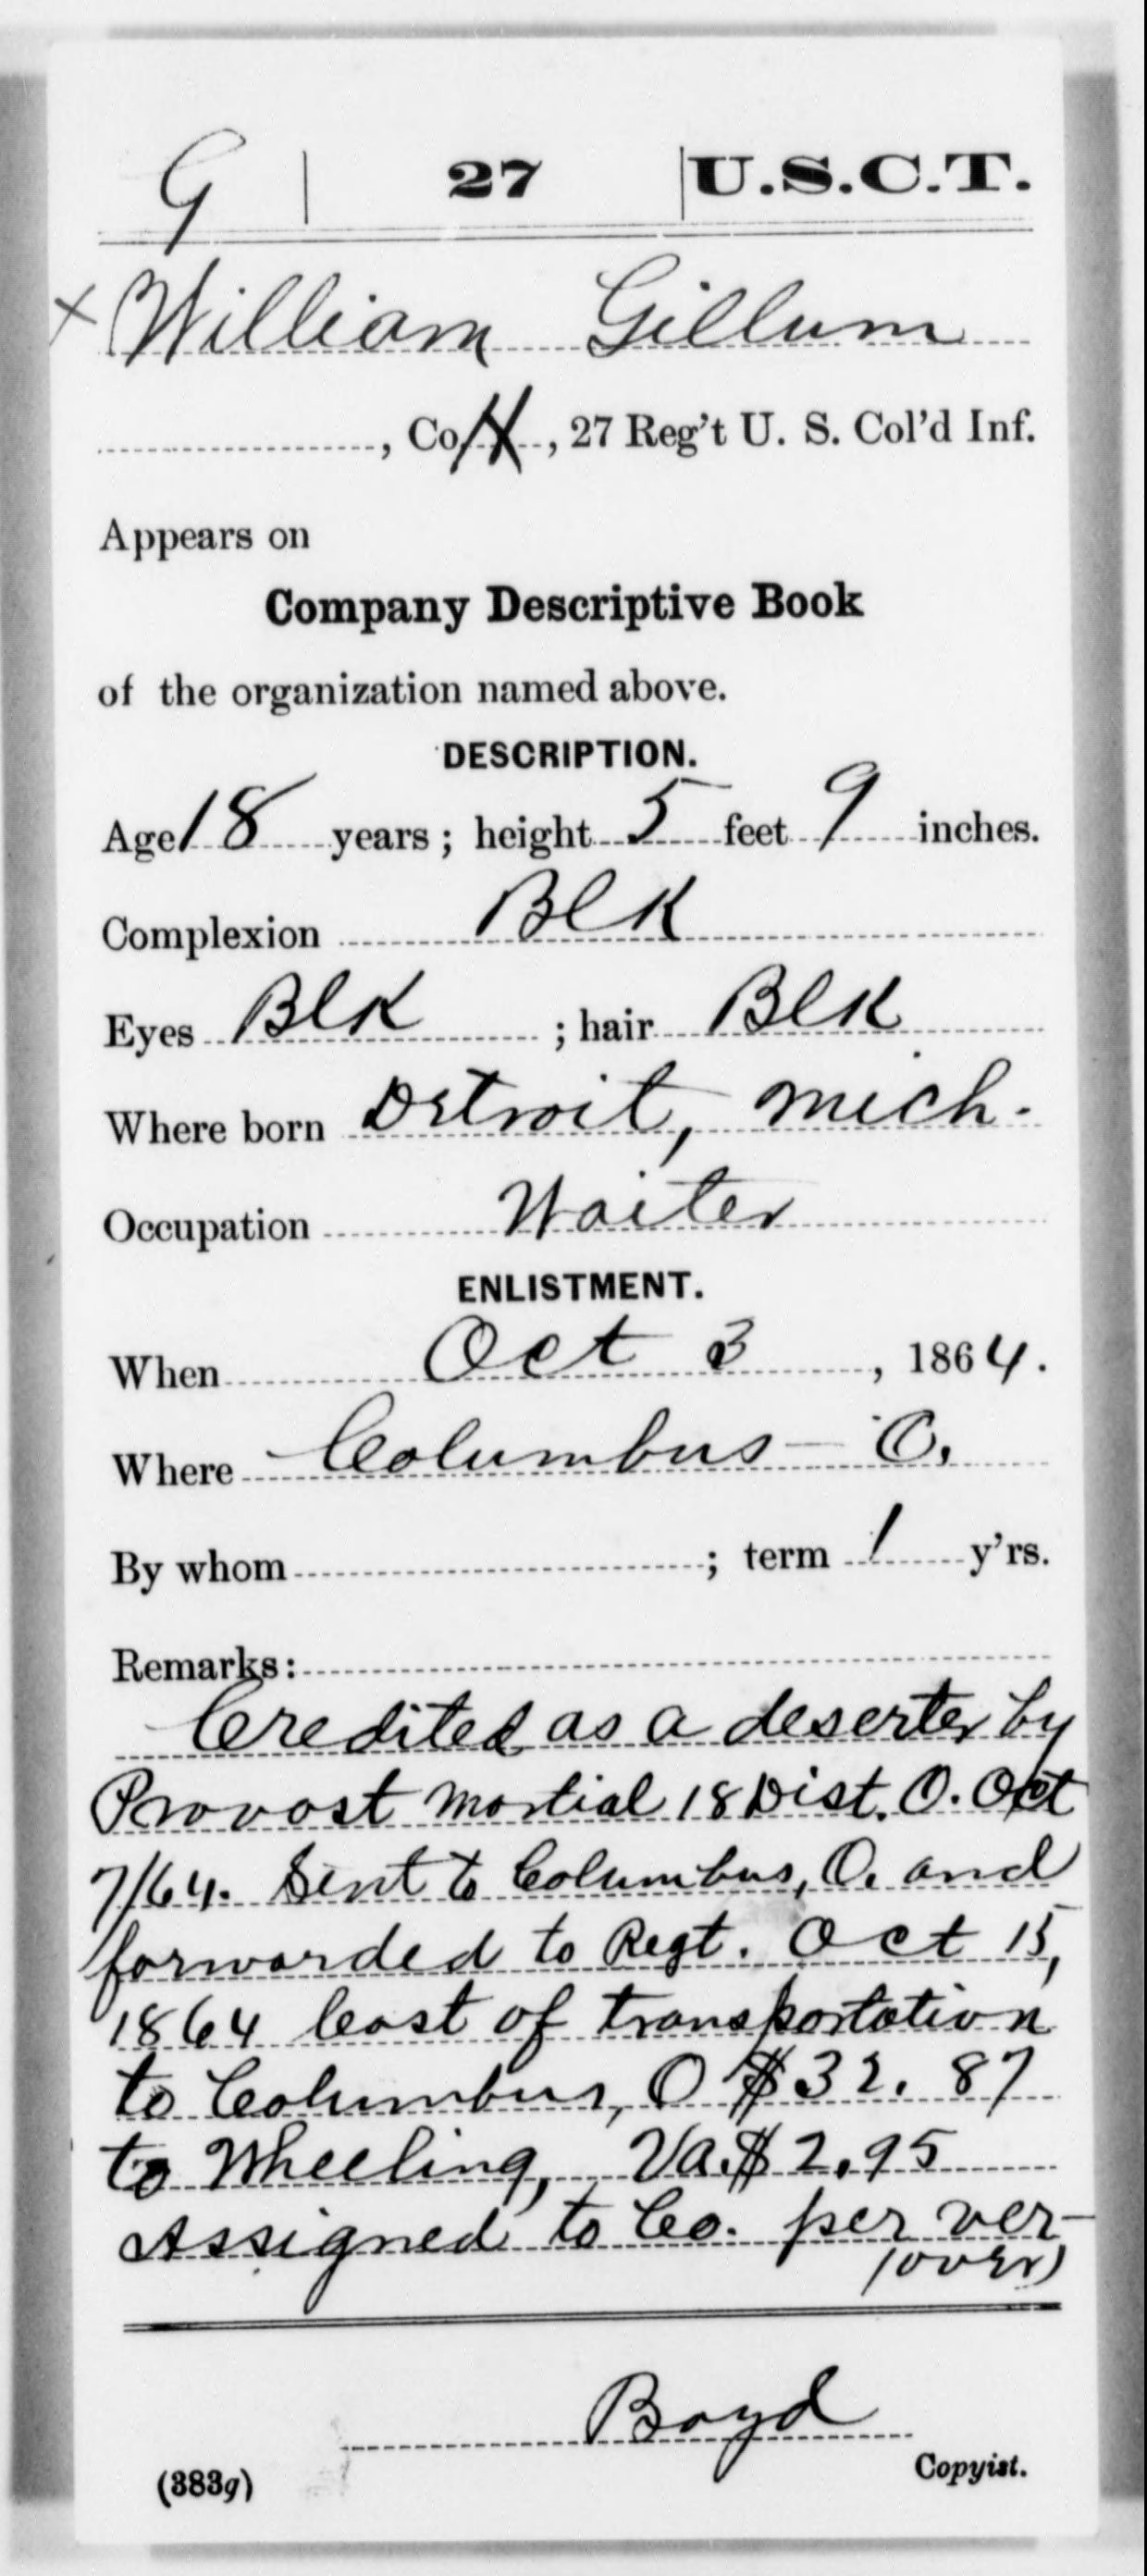 G | 27 | U.S.C.T.
x William Gillum
, Co. H, 27 Reg't U. S. Col'd Inf.
Appears on
Company Descriptive Book
of the organization named above.
DESCRIPTION.
Age 18 years; height 5 feet 9 inches.
Complexion Blk
Eyes Blk ; hair Blk
Where born Detroit, Mich.
Occupation Waiter
ENLISTMENT.
When Oct 3, 1864.
Where Columbus - O.
By whom ; term 1 y'rs.
Remarks:
Credited as a deserter by
Provost Martial 18 Dist. O. Oct
7/64. Sent to Columbus, O. and
forwarded to Regt. Oct 15,
1864 Cost of transportation
to Columbus, O $32.87
to Wheeling, Va. $2.95
Assigned to Co. per ver-
(over)
Boyd
Copyist.
(383g)